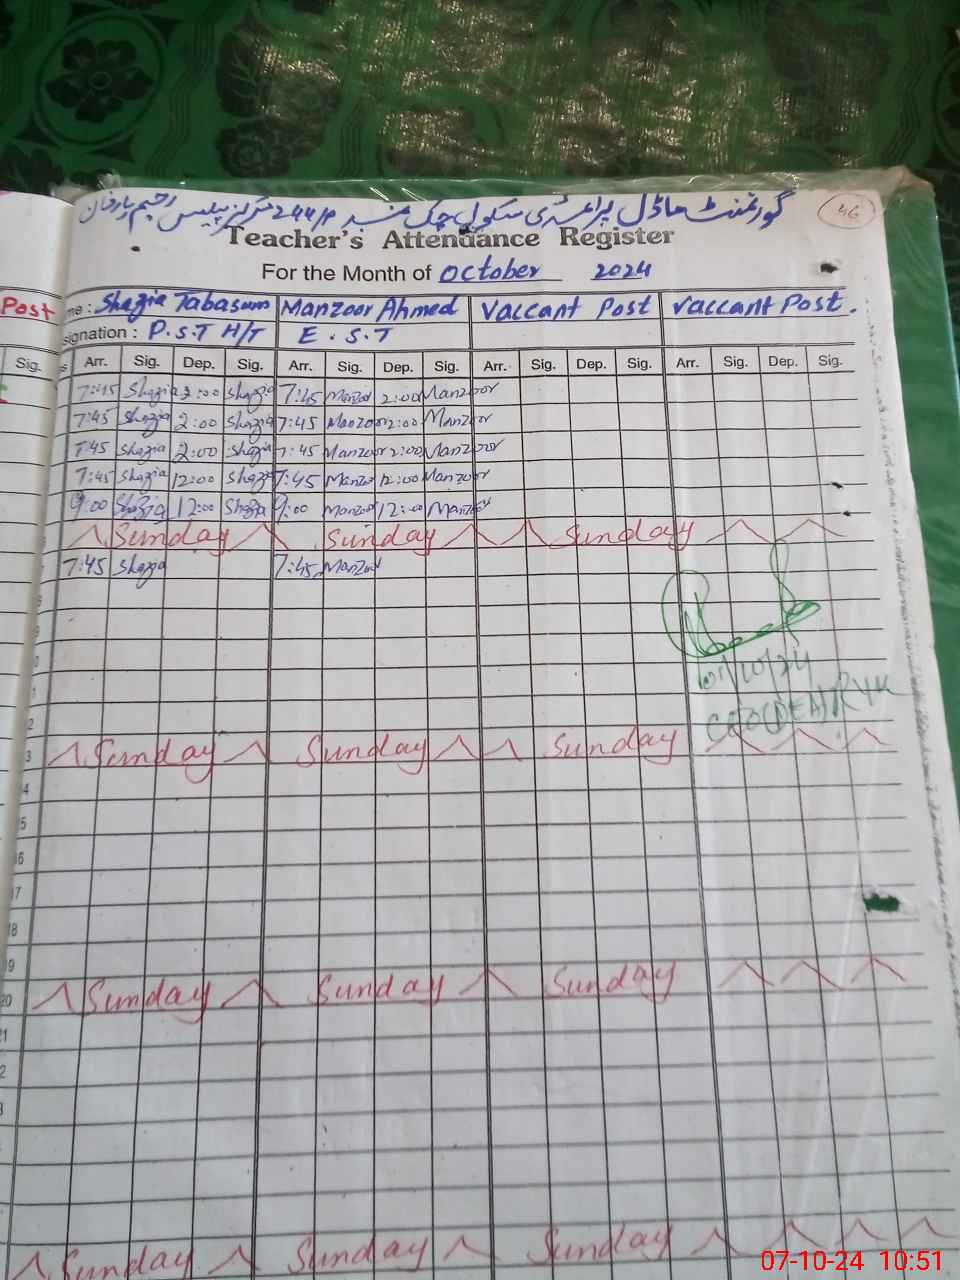 گورنمنٹ ماڈل پرائمری سکول چک نمبر 244/P مرکز پیلیس رحیم یار خان
46
Teacher's Attendance Register
For the Month of October 2024
Post me : Shazia Tabasum Manzoor Ahmed Vaccant Post Vaccant Post.
signation : P.S.T H/T E.S.T
Sig. s Arr. Sig. Dep. Sig. Arr. Sig. Dep. Sig. Arr. Sig. Dep. Sig. Arr. Sig. Dep. Sig.
7:45 Shazia 2:00 Shazia 7:45 Manzoor 2:00 Manzoor
7:45 Shazia 2:00 Shazia 7:45 Manzoor 2:00 Manzoor
7:45 Shazia 2:00 Shazia 7:45 Manzoor 2:00 Manzoor
7:45 Shazia 12:00 Shazia 7:45 Manzoor 12:00 Manzoor
9:00 Shazia 12:00 Shazia 9:00 Manzoor 12:00 Manzoor
Sunday Sunday Sunday
7:45 Shazia 7:45 Manzoor
8
9
0
1
CEO(DEA)RYK
2
3 Sunday Sunday Sunday
4
15
16
17
18
19
20 Sunday Sunday Sunday
21
2
3
Sunday Sunday Sunday
07-10-24 10:51